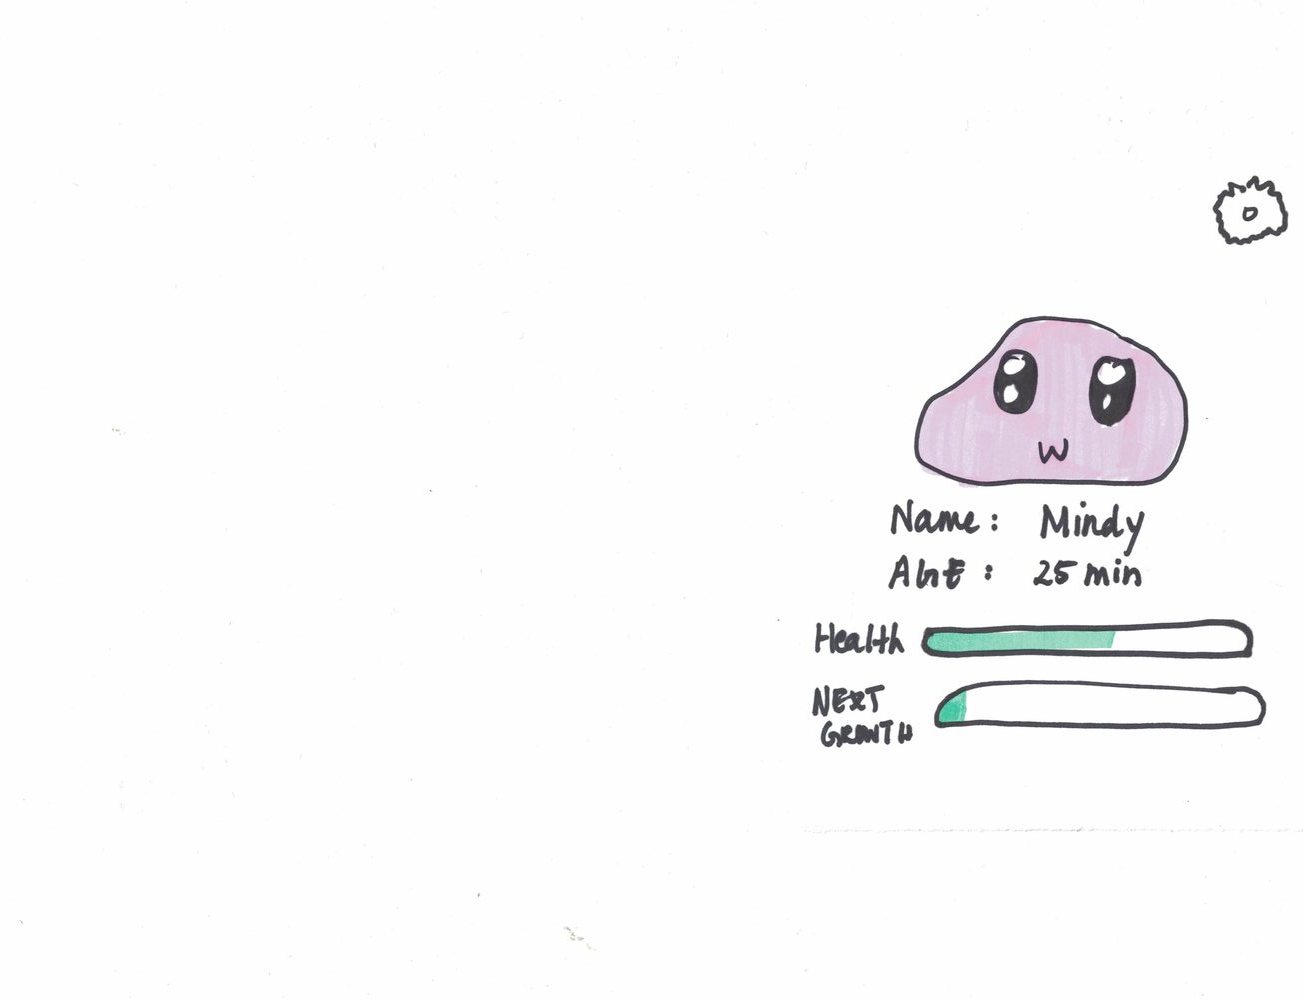 Name: Mindy
AGE: 25 min
Health
NEXT
GROWTH